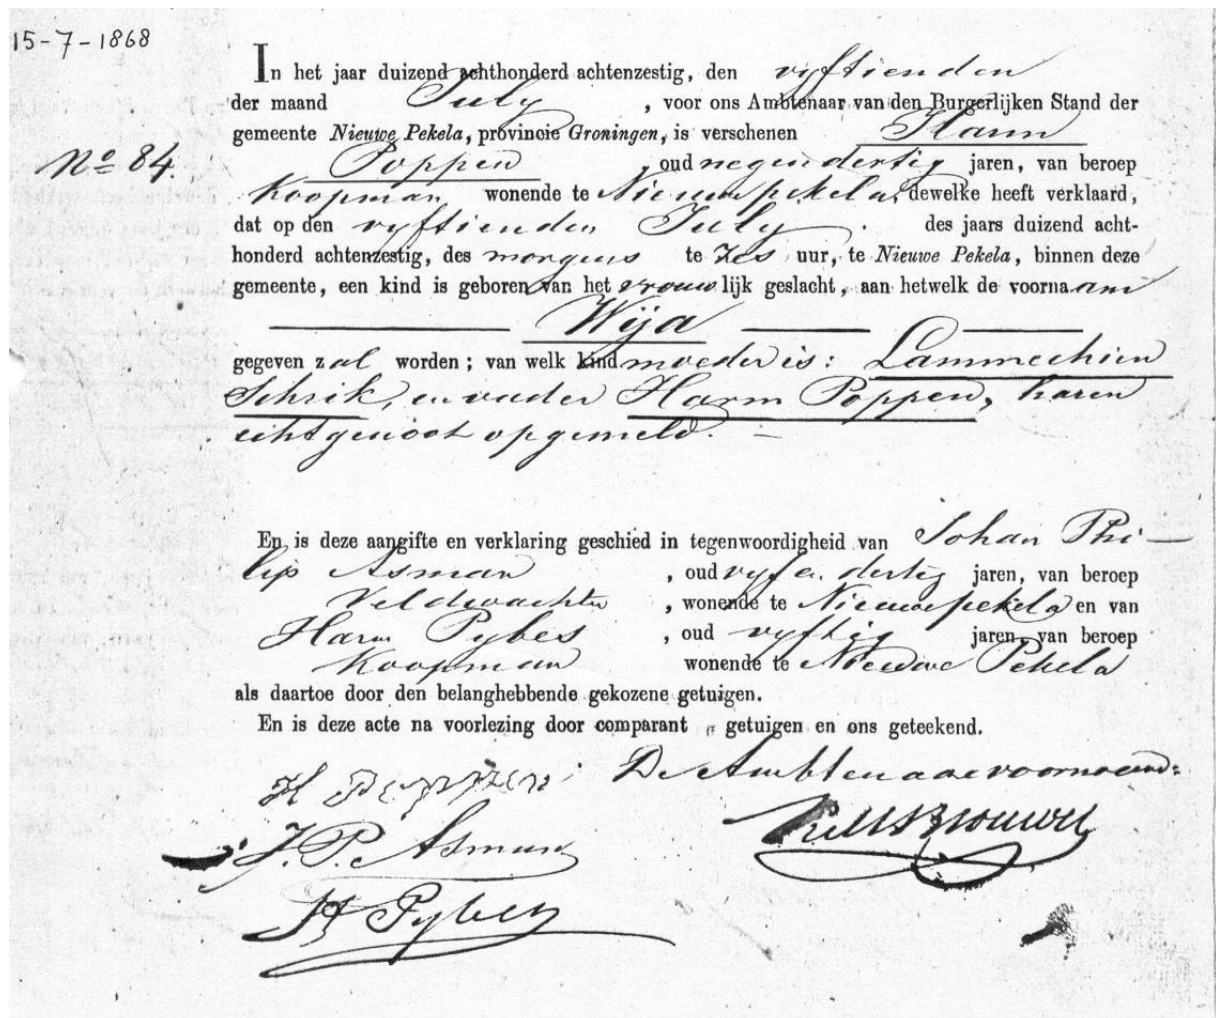 15-7-1868
In het jaar duizend achthonderd achtenzestig, den vyftienden
der maand July , voor ons Ambtenaar van den Burgerlijken Stand der
gemeente Nieuwe Pekela, provincie Groningen, is verschenen Harm
No 84. Poppen , oud negendertig jaren, van beroep
Koopman, wonende te Nieuwepekela, dewelke heeft verklaard,
dat op den vyftienden July des jaars duizend acht-
honderd achtenzestig, des morgens te zes uur, te Nieuwe Pekela, binnen deze
gemeente, een kind is geboren van het vrouwlijk geslacht, aan hetwelk de voornaam
Wija
gegeven zal worden; van welk kind moeder is: Lammechien
Schrik, en vader Harm Poppen, haren
echtgenoot opgemeld. —
En is deze aangifte en verklaring geschied in tegenwoordigheid van Johan Phi—
lip Asman , oud vyf en dertig jaren, van beroep
Veldwachter , wonende te Nieuwepekela en van
Harm Pybes , oud vyftig jaren, van beroep
Koopman wonende te Nieuwe Pekela
als daartoe door den belanghebbende gekozene getuigen.
En is deze acte na voorlezing door comparant „ getuigen en ons geteekend.
H Poppen De Ambtenaar voornoemd:
J. P. Asman Brouwer
H Pybes